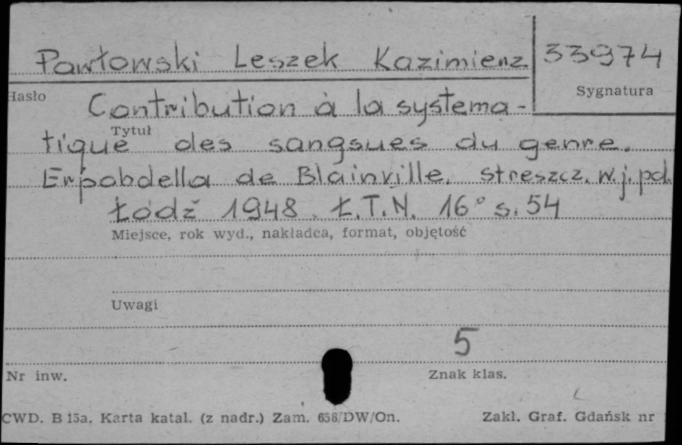 Pawłowski Leszek Kazimierz 33974
Hasło Sygnatura
Contribution à la systema-
Tytuł
tique des sangsues du genre.
Erpobdella de Blainville. streszcz. w.j. pol.
Łódź 1948. Ł.T.N. 16° s. 54
Miejsce, rok wyd., nakładca, format, objętość
Uwagi
5
Nr inw. Znak klas.
CWD. B 15a. Karta katal. (z nadr.) Zam. 656/DW/On. Zakl. Graf. Gdańsk nr